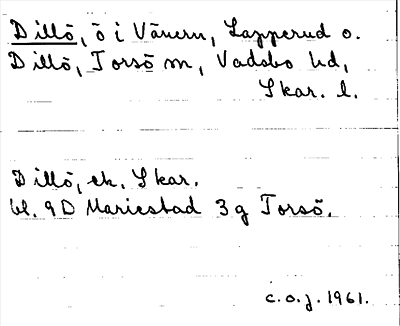 Dillö, ö i Vänern, Lapperud o.
Dillö, Torsö m, Vadsbo hd,
Skar. l.
Dillö, ek. Skar.
bl. 9D Mariestad 3g Torsö.
c.o.j. 1961.